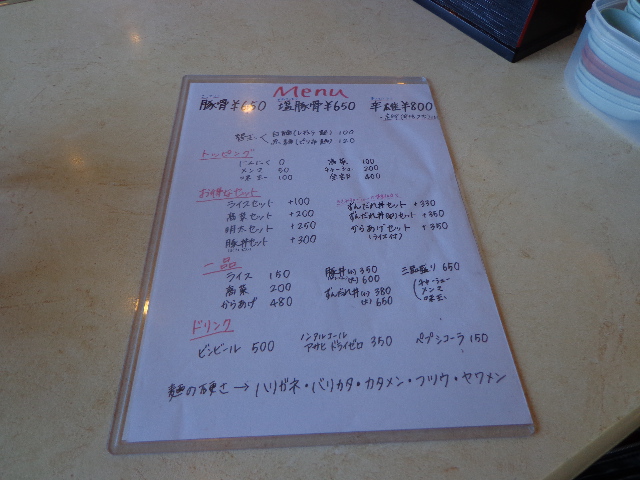 Menu
豚骨¥650 塩豚骨¥650 半雄¥800
替玉く 白麺(しなやか麺) 100
赤麺(パリ) 120
トッピング
にんにく 0 高菜 100
メンマ 50 チャーシュー 200
味玉 100 全部 400
お得なセット
ライスセット +100 ずんだれ丼セット +330
高菜セット +200 ずんだれ丼(大)セット +350
明太セット +250 からあげセット +350
豚丼セット +300 (ライス付)
一品
ライス 150 豚丼(小) 350 三種盛り 650
高菜 200 (大) 600 (チャーシュー
からあげ 480 ずんだれ丼(小) 380 メンマ
(大) 650 味玉)
ドリンク
ビンビール 500 ノンアルコール
アサヒドライゼロ 350 ペプシコーラ 150
麺の硬さ→ハリガネ・バリカタ・カタメン・フツウ・ヤワメン